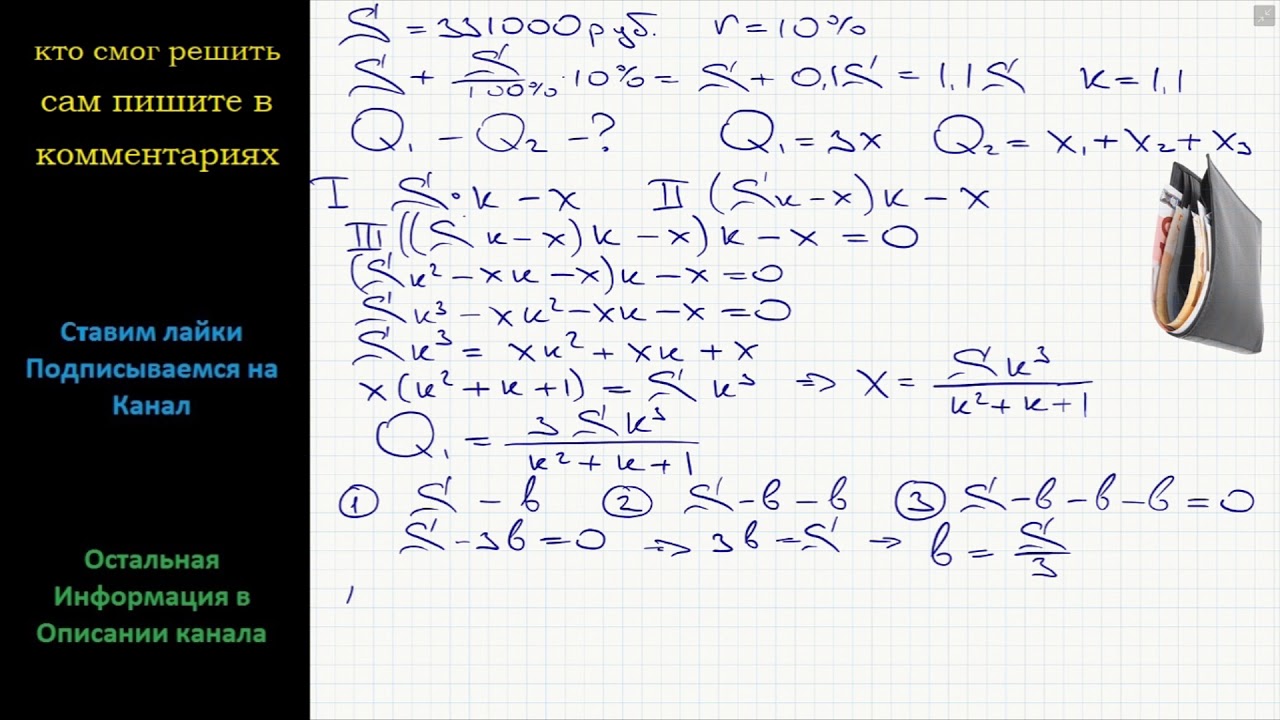 кто смог решить
сам пишите в
комментариях
Ставим лайки
Подписываемся на
Канал
Остальная
Информация в
Описании канала
S = 331000 руб. r = 10%
S + S/100% · 10% = S + 0,1S = 1,1S k = 1,1
Q₁ − Q₂ − ? Q₁ = 3x Q₂ = x₁ + x₂ + x₃
I S · k − x II (Sk − x)k − x
III ((Sk − x)k − x)k − x = 0
(Sk² − xk − x)k − x = 0
Sk³ − xk² − xk − x = 0
Sk³ = xk² + xk + x
x(k² + k + 1) = Sk³ ⇒ x = Sk³/(k² + k + 1)
Q₁ = 3Sk³/(k² + k + 1)
① S − b ② S − b − b ③ S − b − b − b = 0
S − 3b = 0 → 3b = S → b = S/3